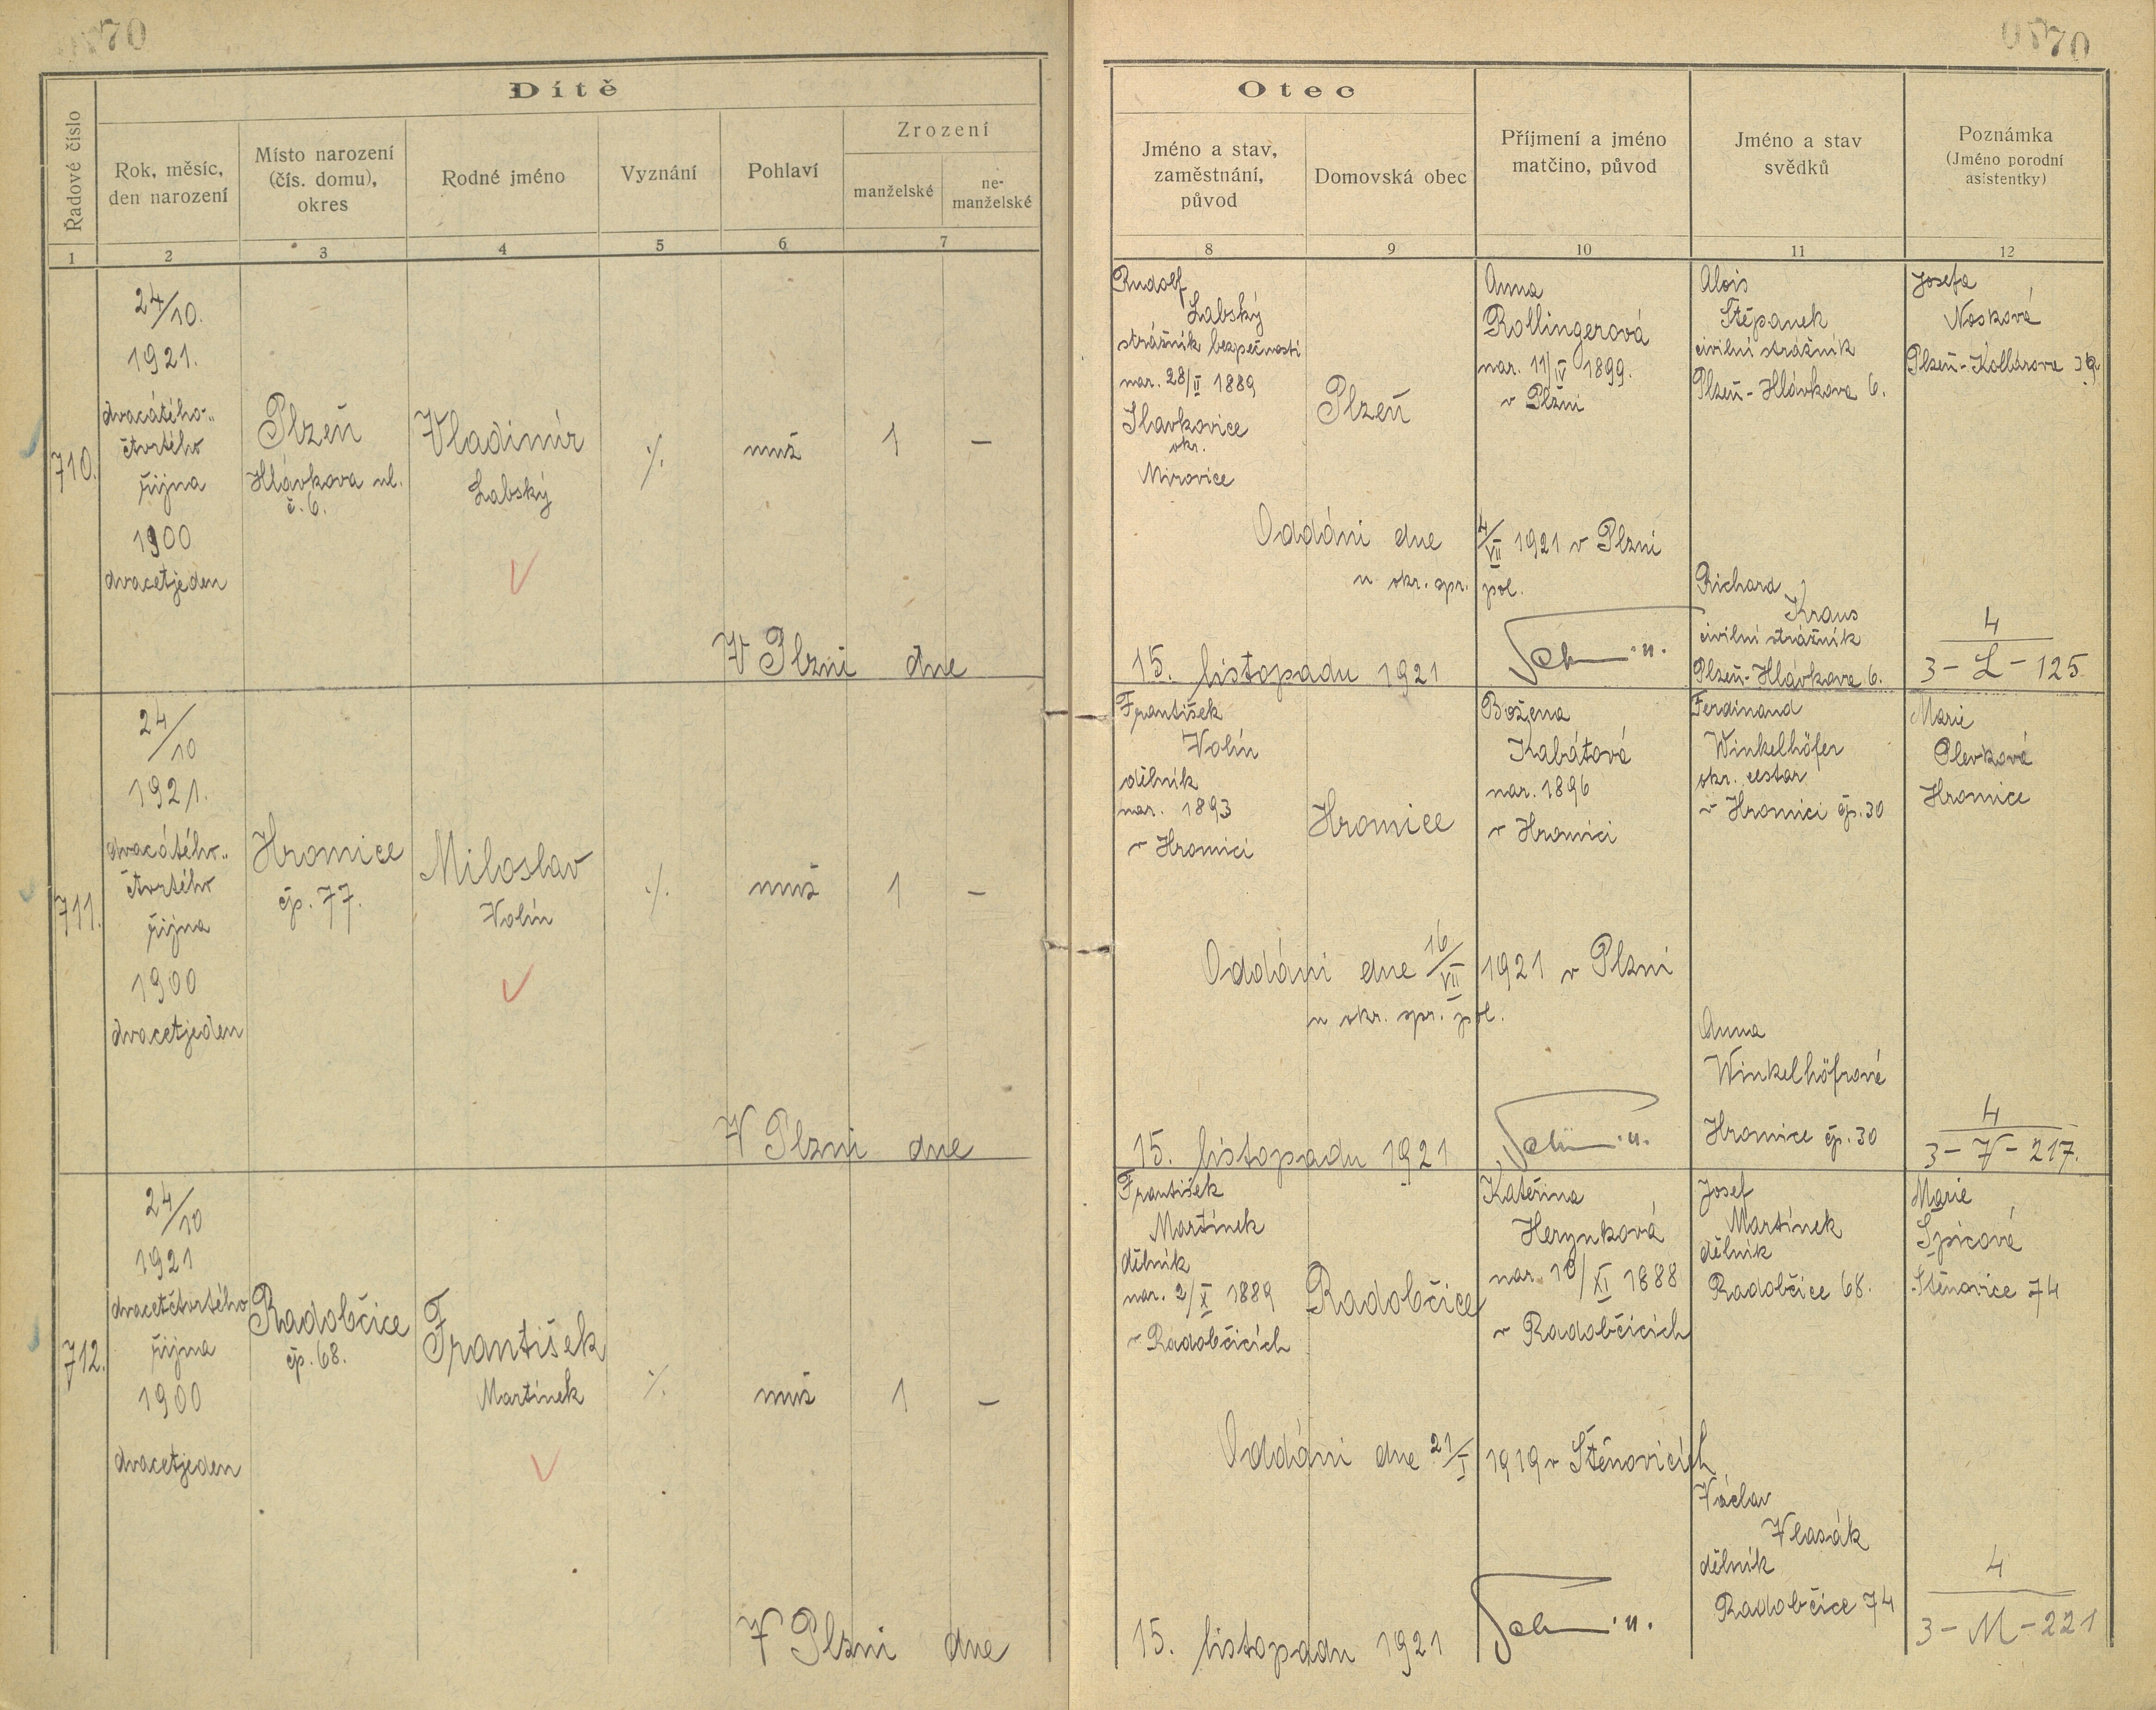 70
0770
Dítě
Řadové číslo
Rok, měsíc,
den narození
Místo narození
(čís. domu),
okres
Rodné jméno
Vyznání
Pohlaví
Zrození
manželské
ne-
manželské
1
2
3
4
5
6
7
Otec
Jméno a stav,
zaměstnání,
původ
Domovská obec
Příjmení a jméno
matčino, původ
Jméno a stav
svědků
Poznámka
(Jméno porodní
asistentky)
8
9
10
11
12
710.
24/10.
1921.
dvacátého-
čtvrtého
října
1900
dvacetjeden
Plzeň
Hlávkova ul.
č. 6.
Vladimír
Labský
./.
muž
1
–
V Plzni dne
Rudolf
Labský
strážník bezpečnosti
nar. 28/II 1889
Slavkovice
okr.
Mirovice
Plzeň
Anna
Rollingerová
nar. 11/IV 1899.
v Plzni
Alois
Štěpanek
civilní strážník
Plzeň - Hlávkova 6.
Josefa
Nosková
Plzeň - Kollárova
Oddáni dne 4/VII 1921 v Plzni
u okr. spr. pol.
Richard
Kraus
civilní strážník
Plzeň - Hlávkova 6.
15. listopadu 1921
4
3 - L - 125.
711.
24/10
1921.
dvacátého
čtvrtého
října
1900
dvacetjeden
Hromice
čp. 77.
Miloslav
Volín
./.
muž
1
–
V Plzni dne
František
Volín
dělník
nar. 1893
v Hromici
Hromice
Božena
Kabátová
nar. 1896
v Hromici
Ferdinand
Winkelhöfer
okr. cestář
v Hromici čp. 30
Marie
Plevková
Hromice
Oddáni dne 16/VII 1921 v Plzni
u okr. spr. pol.
Anna
Winkelhöfrová
Hromice čp. 30
15. listopadu 1921
4
3 - V - 217.
712.
24/10
1921
dvacetčtvrtého
října
1900
dvacetjeden
Radobčice
čp. 68.
František
Martínek
./.
muž
1
–
V Plzni dne
František
Martínek
dělník
nar. 2/X 1889
v Radobčicích
Radobčice
Kateřina
Herynková
nar. 10/XI 1888
v Radobčicích
Josef
Martínek
dělník
Radobčice 68.
Marie
Špicová
Štěnovice 74
Oddáni dne 21/I 1919 v Štěnovicích
Václav
Vlasák
dělník
Radobčice 74
15. listopadu 1921
4
3 - M - 221